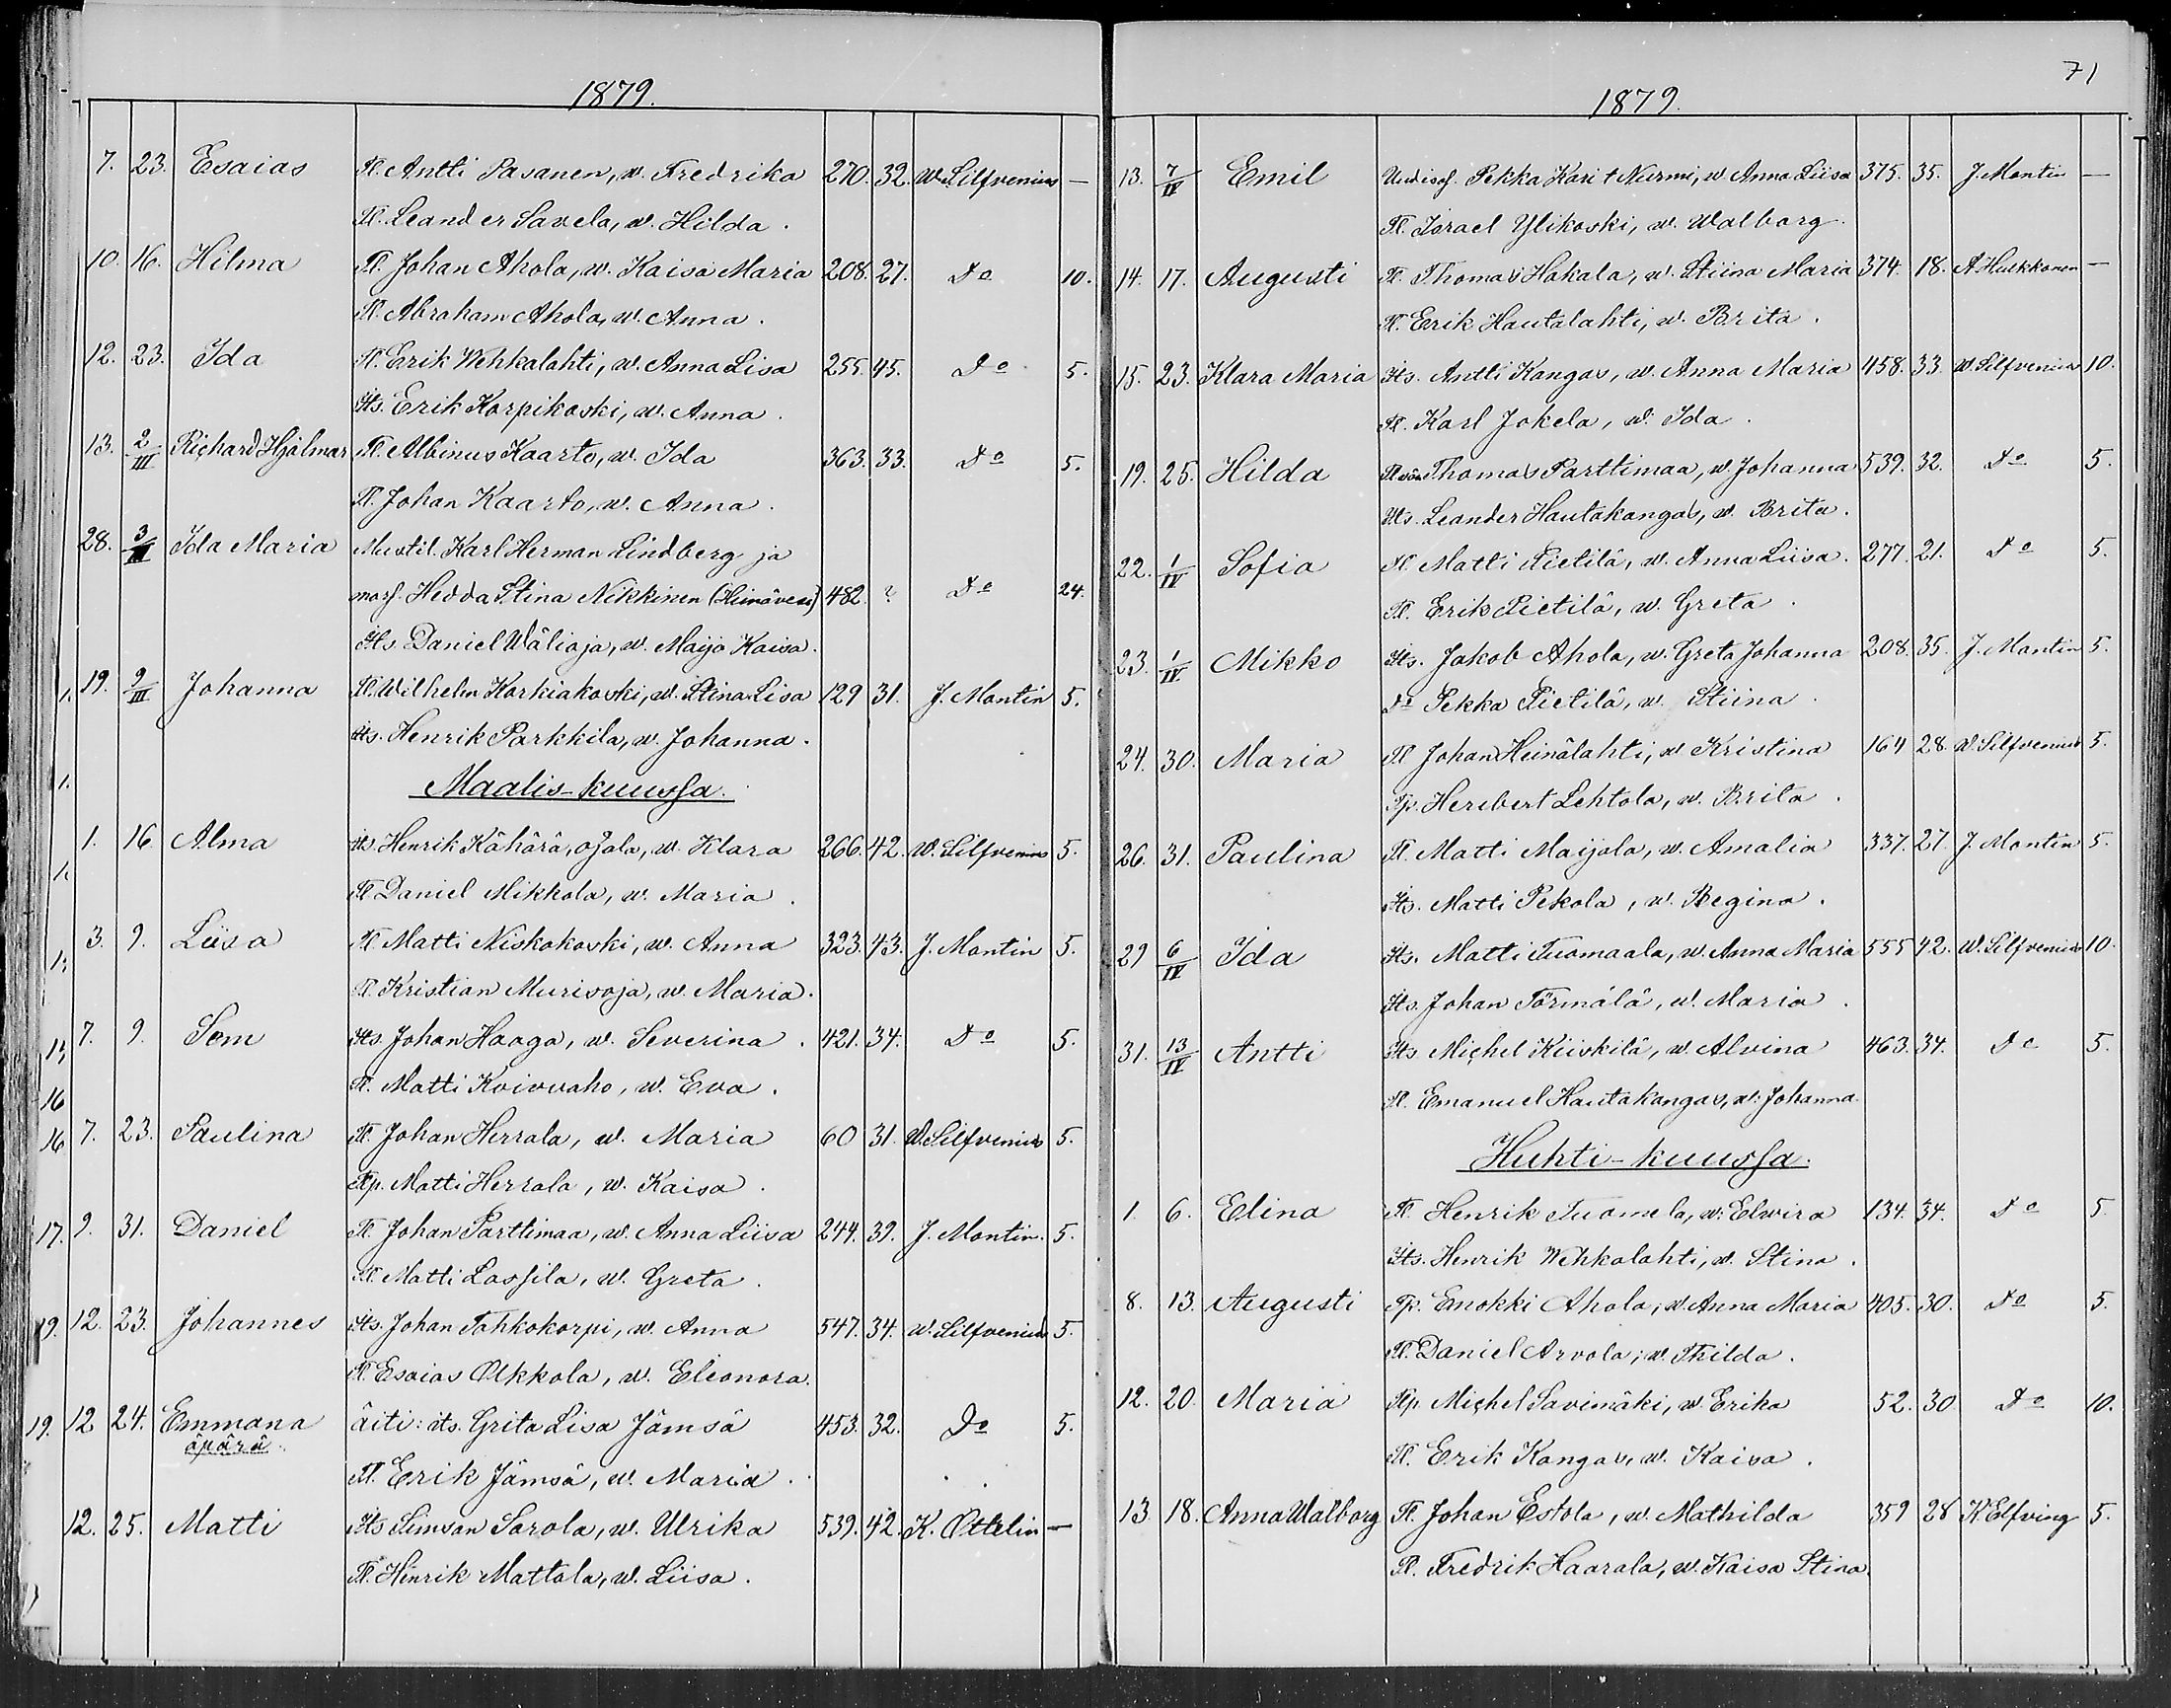 1879.
7. 23. Esaias Tl. Antti Pasanen, w. Fredrika 270. 32. W. Silfvenius —
Tl. Leander Savela, w. Hilda.
10. 16. Hilma Tl. Johan Ahola, w. Kaisa Maria 208. 27. Do 10.
Tl. Abraham Ahola, w. Anna.
12. 23. Ida Tl. Erik Wehkalahti, w. Anna Lisa 255. 45. Do 5.
Its. Erik Korpikoski, w. Anna.
13. 2/III Richard Hjalmar Tl. Albinus Kaarto, w. Ida 363. 33. Do 5.
Tl. Johan Kaarto, w. Anna.
28. 3/III Ida Maria Mustil. Karl Herman Lindberg ja
mors. Hedda Stina Nikkinen (Heinävesi) 482. ? Do 24.
Its. Daniel Wälioja, w. Maija Kaisa.
19. 9/III Johanna Tl. Wilhelm Korkiakoski, w. Stina Lisa 129 31. J. Montin 5.
Its. Henrik Parkkila, w. Johanna.
Maalis-kuussa.
1. 16 Alma Its. Henrik Kähärä, ojala, w. Klara 266. 42. W. Silfvenius 5.
Tl. Daniel Mikkola, w. Maria.
3. 9. Liisa Tl. Matti Niskakoski, w. Anna 323. 43. J. Montin 5.
Tl. Kristian Murisoja, w. Maria.
7. 9. Sem Its. Johan Haaga, w. Severina. 421. 34. Do 5.
Tl. Matti Koivuaho, w. Eva.
7. 23. Paulina Tl. Johan Herrala, w. Maria 60 31. W. Silfvenius 5.
Tp. Matti Herrala, w. Kaisa.
9. 31. Daniel Tl. Johan Parttimaa, w. Anna Liisa 244. 39. J. Montin. 5.
Tl. Matti Lassila, w. Greta.
12. 23. Johannes Its. Johan Tahkokorpi, w. Anna 547. 34. W. Silfvenius 5.
Tl. Esaias Olkkola, w. Eleonora.
12 24. Emmana äiti: its. Grita Lisa Jämsä 453. 32. Do 5.
äpärä.
Tl. Erik Jämsä, w. Maria.
12. 25. Matti Its Simson Sorola, w. Ulrika 539. 42. K. Ottelin —
Tl. Henrik Mattala, w. Liisa.
71
1879.
13. 7/IV Emil Uudisas. Pekka Kari t Nurmi, w. Anna Liisa 375. 35. J. Montin —
Tl. Israel Ylikoski, w. Walborg.
14. 17. Augusti Tl. Thomas Hakala, w. Stiina Maria 374. 18. A. Hulkkonen —
Tl. Erik Hautalahti, w. Brita.
15. 23. Klara Maria Its. Antti Kangas, w. Anna Maria 458. 33. W. Silfvenius 10.
Tl. Karl Jokela, w. Ida.
19. 25. Hilda Thomas Parttimaa, w. Johanna 539. 32. Do 5.
Its. Leander Hautakangas, w. Brita.
22. 1/IV Sofia Tl. Matti Pietilä, w. Anna Liisa. 277. 21. Do 5.
Tl. Erik Pietilä, w. Greta.
23. 1/IV Mikko Its. Jakob Ahola, w. Greta Johanna 208. 35. J. Montin 5.
Do Pekka Pietilä, w. Stiina.
24. 30. Maria Tl. Johan Heinälahti, w. Kristina 164 28. W. Silfvenius 5.
Tp. Herebert Lehtola, w. Brita.
26. 31. Paulina Tl. Matti Maijala, w. Amalia 337. 27. J. Montin 5.
Its. Matti Pekola, w. Regina.
29 6/IV Ida Its. Matti Tuomaala, w. Anna Maria 555 42. W. Silfvenius 10.
Its. Johan Törmälä, w. Maria.
31. 13/IV Antti Its Michel Kiiskilä, w. Alvina 463. 34. Do 5.
Tl. Emanuel Hautakangas, w. Johanna.
Huhti-kuussa.
1. 6. Elina Tl. Henrik Tuomela, w. Elwira 134. 34. Do 5.
Its. Henrik Wehkalahti, w. Stina.
8. 13. Augusti Tp. Enokki Ahola, w. Anna Maria 405. 30. Do 5.
Tl. Daniel Arvola, w. Thilda.
12. 20. Maria Tp Michel Savimäki, w. Erika 52. 30 Do 10.
Tl. Erik Kangas, w. Kaisa.
13. 18. Anna Walborg Tl. Johan Estola, w. Mathilda 359 28 K. Elfving 5.
Tl. Fredrik Haarala, w. Kaisa Stina.